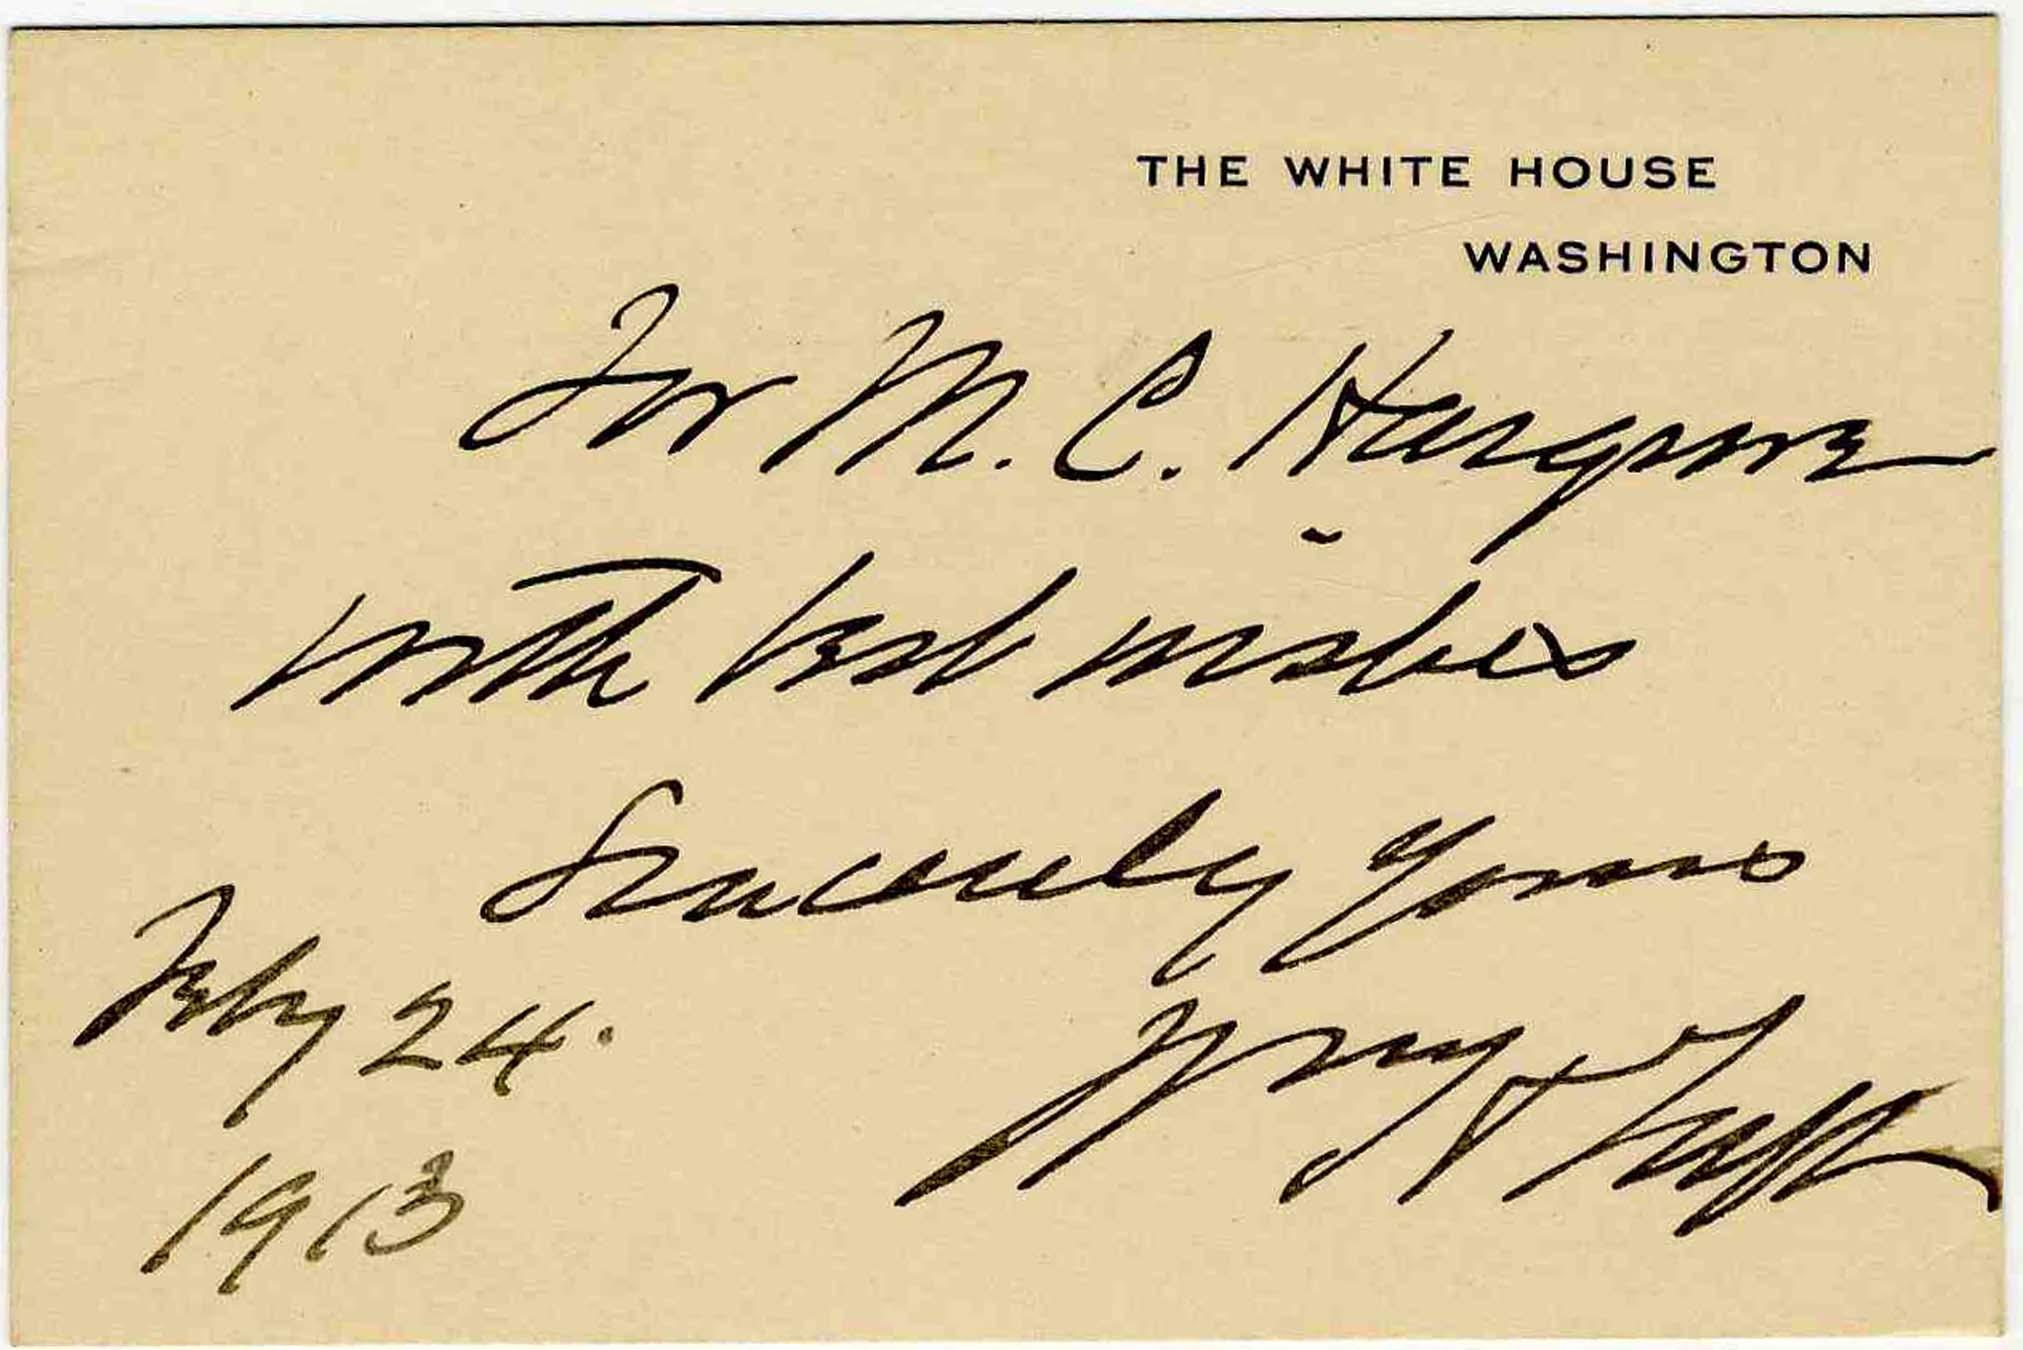 THE WHITE HOUSE
WASHINGTON
For M. C. Hargrove
with best wishes
Sincerely Yours
Wm H Taft
Feby 24.
1913